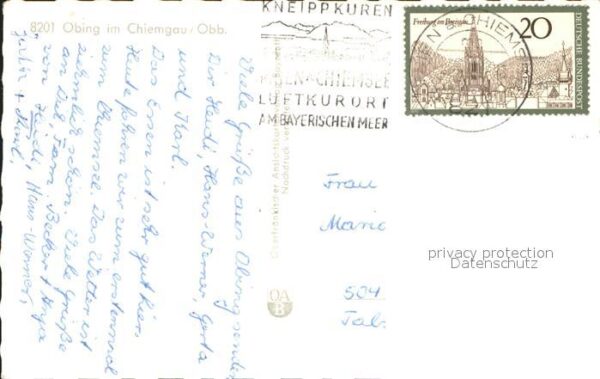 8201 Obing im Chiemgau / Obb.
KNEIPPKUREN
LUFTKURORT
AM BAYERISCHEN MEER
Freiburg im Breisgau
20
DEUTSCHE BUNDESPOST
Viele Grüße aus Obing senden
Dir Heidi, Hans-Werner, Gerta
und Karl.
Das Essen ist sehr gut hier.
Heute fahren wir zum erstenmal
zum Chiemsee. Das Wetter ist
ziemlich schön. Viele Grüße
an Dich, Fam. Becker + Anja
von Heidi, Hans-Werner,
+
Oberfränkischer Ansichtskartenverlag
Nachdruck verboten
OA
B
Frau
Marie
504
privacy protection
Datenschutz